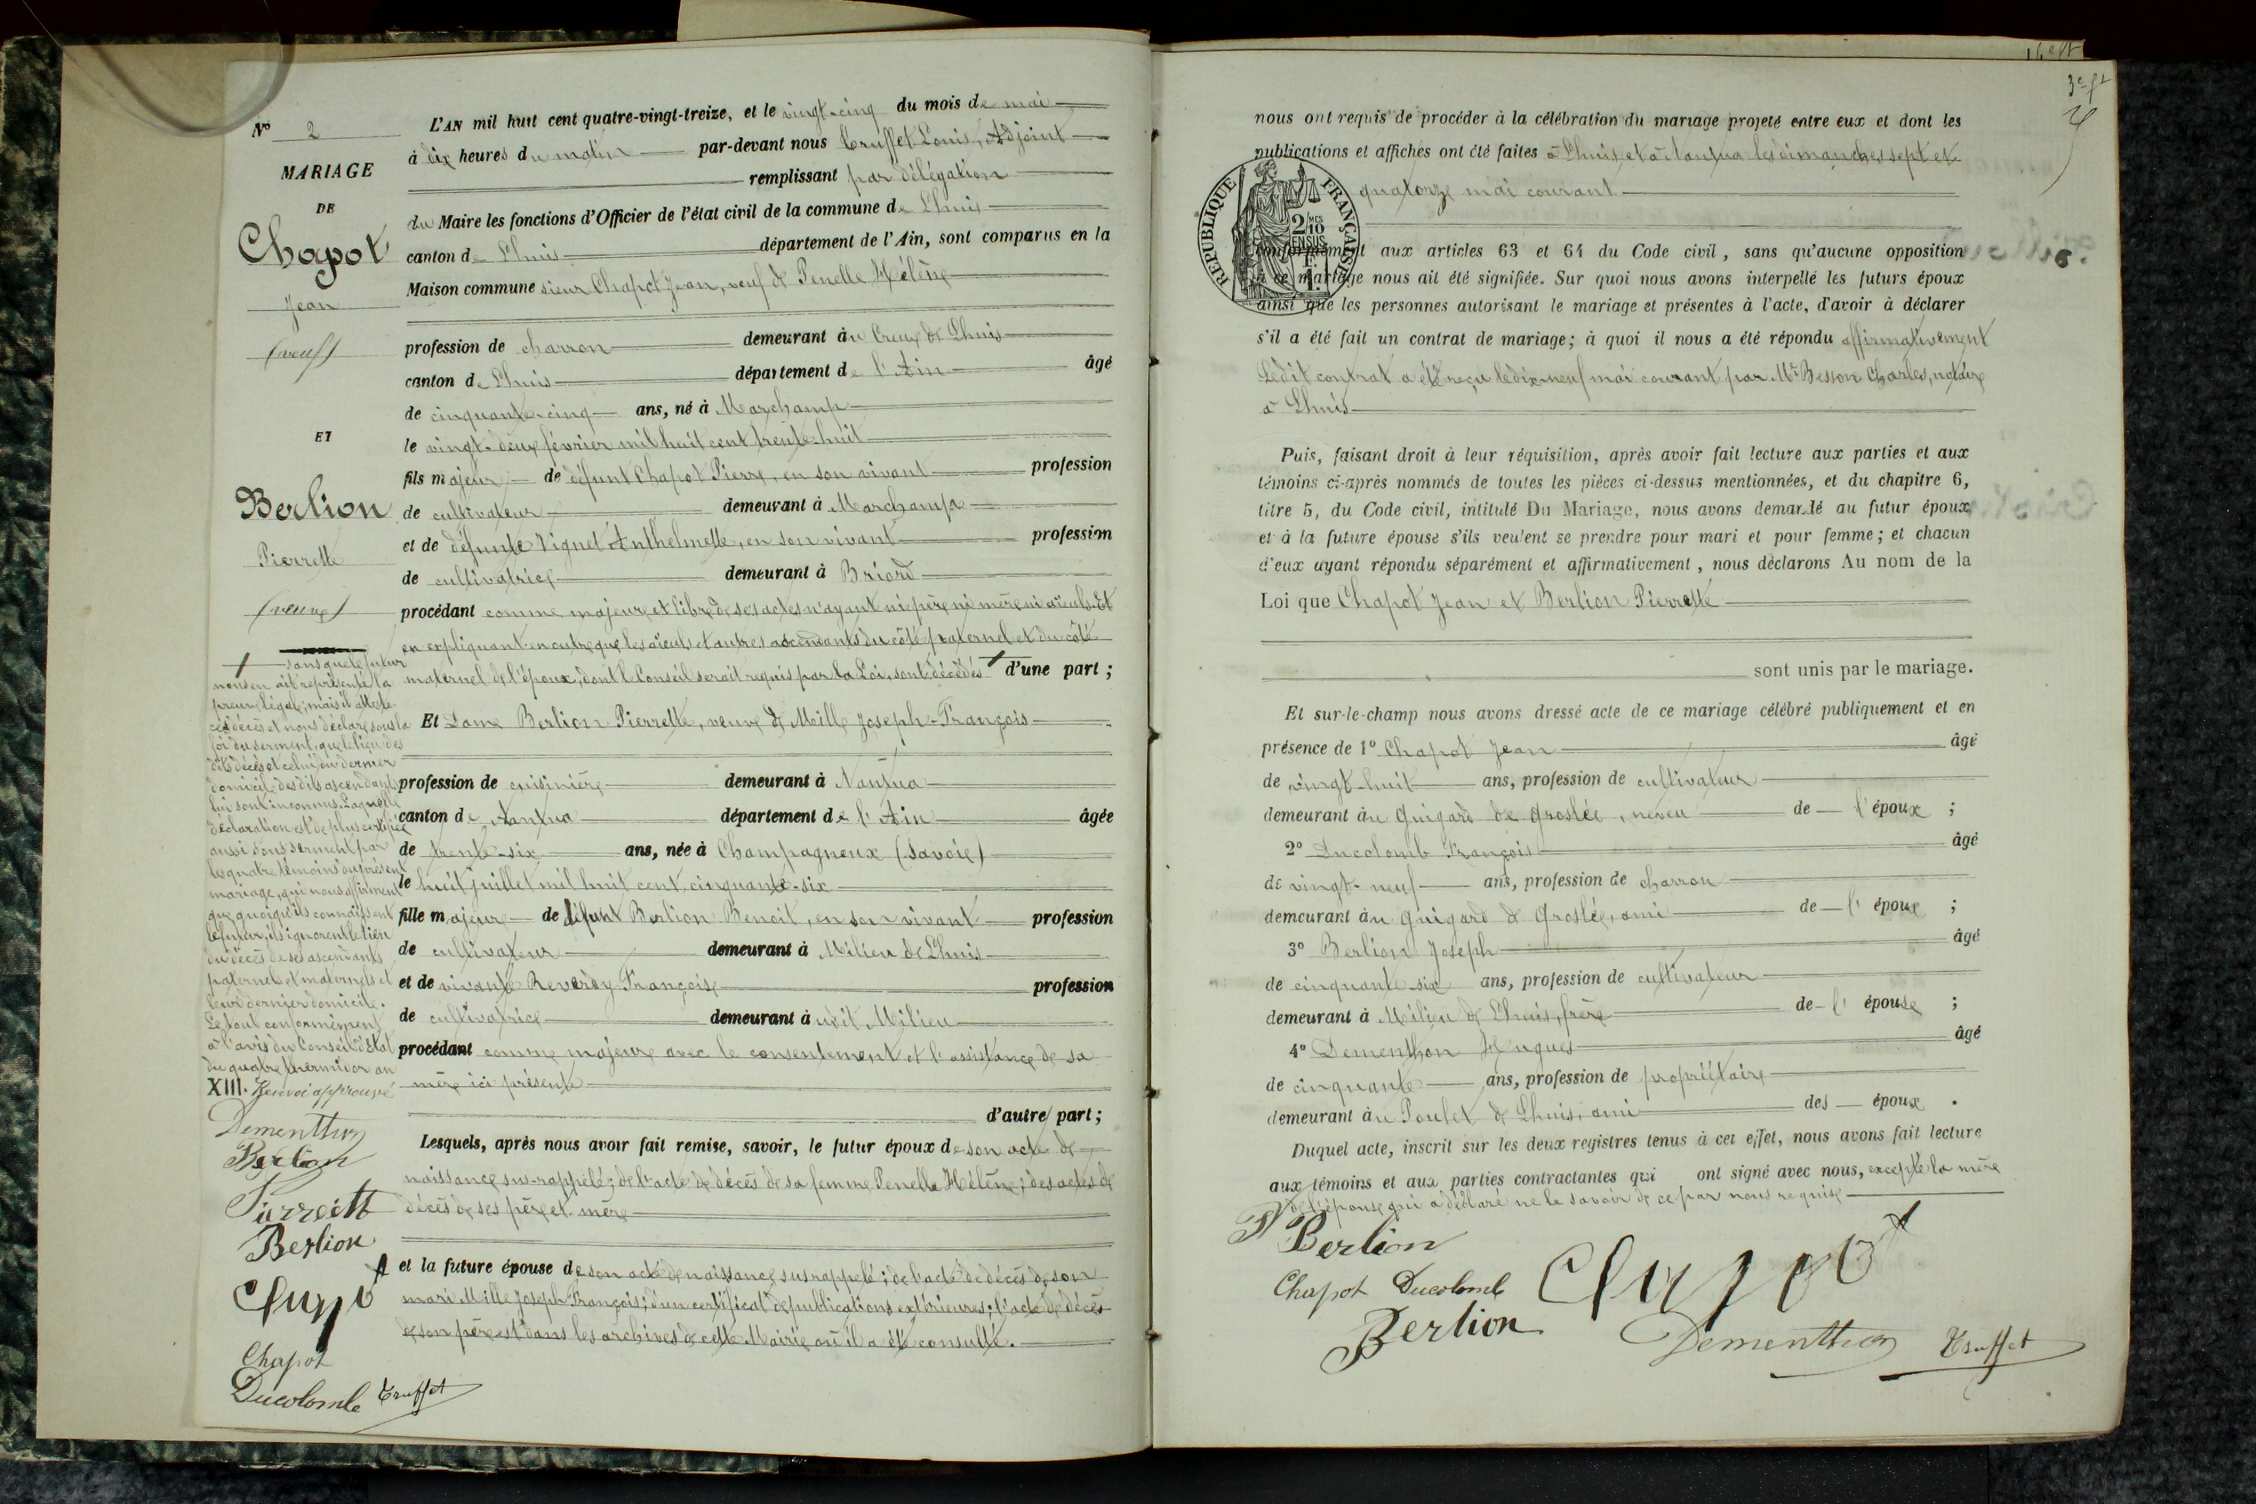 No 2
MARIAGE
DE
Chapot
Jean
(veuf)
ET
Berlion
Pierrette
(veuve)
L'AN mil huit cent quatre-vingt-treize, et le vingt-cinq du mois de mai
à dix heures du matin par-devant nous Truffet Louis, Adjoint
remplissant par délégation
du Maire les fonctions d'Officier de l'état civil de la commune de Lhuis
canton de Lhuis département de l'Ain, sont comparus en la
Maison commune sieur Chapot Jean, veuf de Penelle Hélène
profession de charron demeurant au Creux de Lhuis
canton de Lhuis département de l'Ain âgé
de cinquante-cinq ans, né à Marchamp
le vingt-deux février mil huit cent trente-huit
fils majeur de défunt Chapot Pierre, en son vivant profession
de cultivateur demeurant à Marchamp
et de défunte Vignet Anthelmette, en son vivant profession
de cultivatrice demeurant à Briord
procédant comme majeur et libre de ses actes n'ayant ni père ni mère ni aïeuls. Et
en expliquant en outre que les aïeuls et autres ascendants du côté paternel et du côté
maternel de l'époux, dont le Conseil serait requis par la Loi, sont décédés d'une part ;
Et Dame Berlion Pierrette, veuve de Mille Joseph-François
profession de cuisinière demeurant à Nantua
canton de Nantua département de l'Ain âgée
de trente-six ans, née à Champagneux (Savoie)
le huit juillet mil huit cent cinquante-six
fille majeure de défunt Berlion Benoit, en son vivant profession
de cultivateur demeurant à Milieu de Lhuis
et de vivante Reverdy Françoise profession
de cultivatrice demeurant audit Milieu
procédant comme majeure avec le consentement et l'assistance de sa
mère ici présente
d'autre part ;
Lesquels, après nous avoir fait remise, savoir, le futur époux de son acte de
naissance sus-rappelé ; de l'acte de décès de sa femme Penelle Hélène ; des actes de
décès de ses père et mère
et la future épouse de son acte de naissance susrappelé ; de l'acte de décès de son
mari Mille Joseph François ; d'un certificat de publications extérieures ; l'acte de décès
de son père est dans les archives de cette Mairie où il a été consulté.
sans que le futur
nous en ait représenté la
preuve légale ; mais il atteste
ces décès et nous déclare sous la
foi du serment, que le lieu des
dits décès et celui du dernier
domicile des dits ascendants
lui sont inconnus. Laquelle
déclaration est de plus certifiée
aussi sous serment par
les quatre témoins du présent
mariage, qui nous affirment
que quoiqu'ils connaissent
le futur, ils ignorent le lieu
du décès de ses ascendants
paternels et maternels et
leur dernier domicile.
Le tout conformément
à l'avis du Conseil d'Etat
du quatre thermidor an
XIII. Renvoi approuvé
Dementhon
Berlion
Pierrette
Berlion
Chapot
Chapot
Ducolomb Truffet
3e ft
nous ont requis de procéder à la célébration du mariage projeté entre eux et dont les
publications et affiches ont été faites à Lhuis et à Nantua les dimanches sept et
quatorze mai courant
REPUBLIQUE FRANÇAISE
2/10 MES
EN SUS
1 F.
conformément aux articles 63 et 64 du Code civil, sans qu'aucune opposition
à ce mariage nous ait été signifiée. Sur quoi nous avons interpellé les futurs époux
ainsi que les personnes autorisant le mariage et présentes à l'acte, d'avoir à déclarer
s'il a été fait un contrat de mariage ; à quoi il nous a été répondu affirmativement
Ledit contrat a été reçu le dix-neuf mai courant par Me Besson Charles, notaire
à Lhuis
Puis, faisant droit à leur réquisition, après avoir fait lecture aux parties et aux
témoins ci-après nommés de toutes les pièces ci-dessus mentionnées, et du chapitre 6,
titre 5, du Code civil, intitulé Du Mariage, nous avons demandé au futur époux
et à la future épouse s'ils veulent se prendre pour mari et pour femme ; et chacun
d'eux ayant répondu séparément et affirmativement, nous déclarons Au nom de la
Loi que Chapot Jean et Berlion Pierrette
sont unis par le mariage.
Et sur-le-champ nous avons dressé acte de ce mariage célébré publiquement et en
présence de 1o Chapot Jean âgé
de vingt-huit ans, profession de cultivateur
demeurant au Guigard de Groslée, neveu de l'époux ;
2o Ducolomb François âgé
de vingt-neuf ans, profession de charron
demeurant au Guigard de Groslée, ami de l'époux ;
3o Berlion Joseph âgé
de cinquante-six ans, profession de cultivateur
demeurant à Milieu de Lhuis, frère de l'épouse ;
4o Dementhon Hugues âgé
de cinquante ans, profession de propriétaire
demeurant au Poulet de Lhuis, ami des époux.
Duquel acte, inscrit sur les deux registres tenus à cet effet, nous avons fait lecture
aux témoins et aux parties contractantes qui ont signé avec nous, excepté la mère
de l'épouse qui a déclaré ne le savoir de ce par nous requise
P Berlion
Chapot Ducolomb Chapot
Berlion Dementhon Truffet